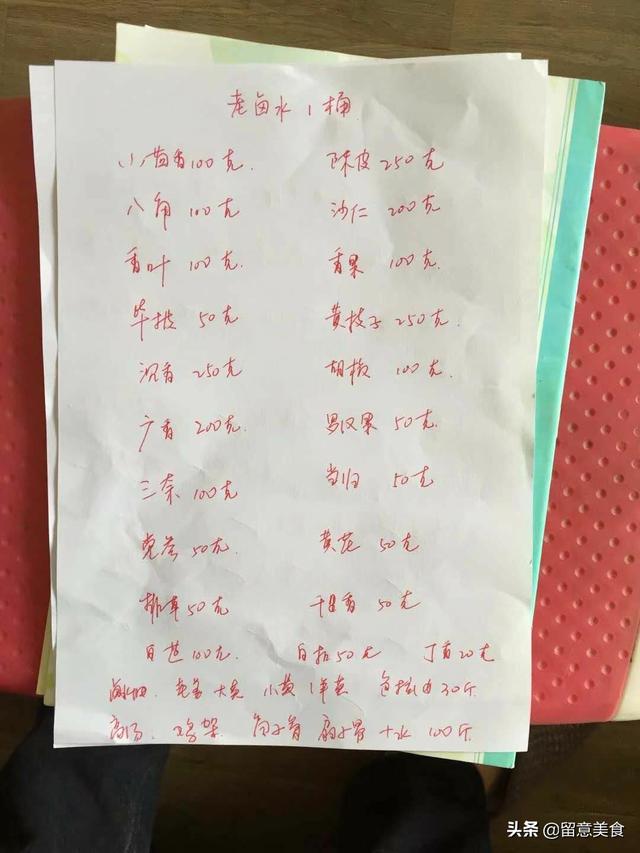 老卤水1桶
小茴香100克. 陈皮250克
八角 100克 沙仁 200克
香叶 100克. 香果 100克.
毕拔 50克 黄枝子250克.
沉香 250克 胡椒 100克.
广香 200克. 罗汉果 50克.
三奈 100克 当归 50克
党参 50克. 黄芪 50克
排草50克 千里香 50克
白芷100克. 白扣50克 丁香20克
大葱 小黄 1年 油30斤
高汤. 鸡架 筒子骨 扇子骨 十水 100斤
头条 @留意美食